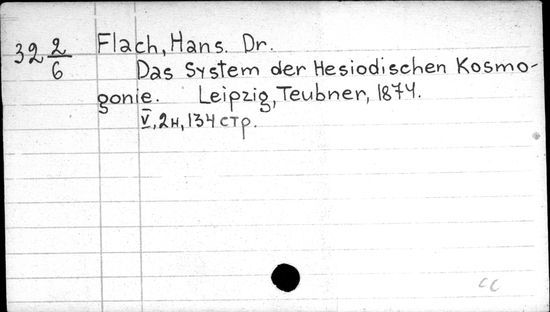 32 2/6
Flach, Hans. Dr.
Das System der Hesiodischen Kosmo-
gonie. Leipzig, Teubner, 1874.
V, 2н, 134 стр.